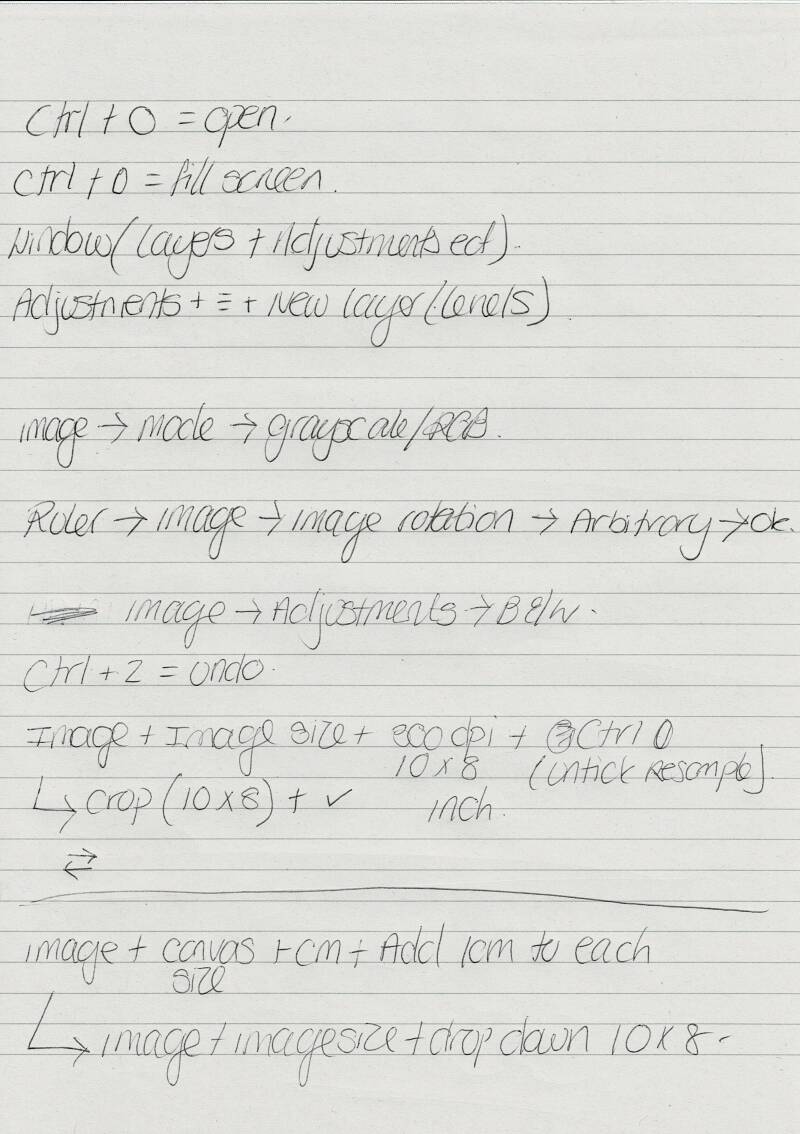 Ctrl + O = open.
Ctrl + 0 = fill screen.
Window (Layers + Adjustments ect).
Adjustments + ≡ + New layer (Levels)
image → mode → grayscale/RGB.
Ruler → image → image rotation → Arbitrary → ok.
image → Adjustments → B&W.
Ctrl + Z = undo.
Image + Image size + dpi + Ctrl 0
10 x 8 (untick Resample).
↳ crop (10 x 8) + ✓ inch.
⇄
image + canvas + cm + Add 1cm to each
size
↳ image + image size + drop down 10 x 8.